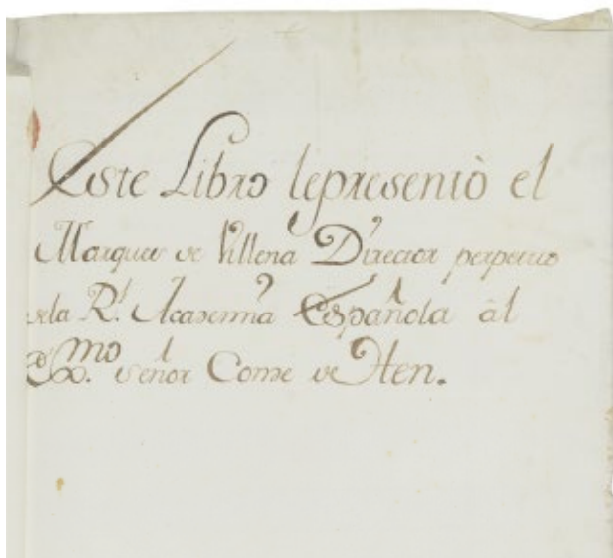 Este Libro lepresentò el
Marques de Villena Director perpetuo
dela Rl. Academia Española âl
Exmo. señor Conde de Hen.